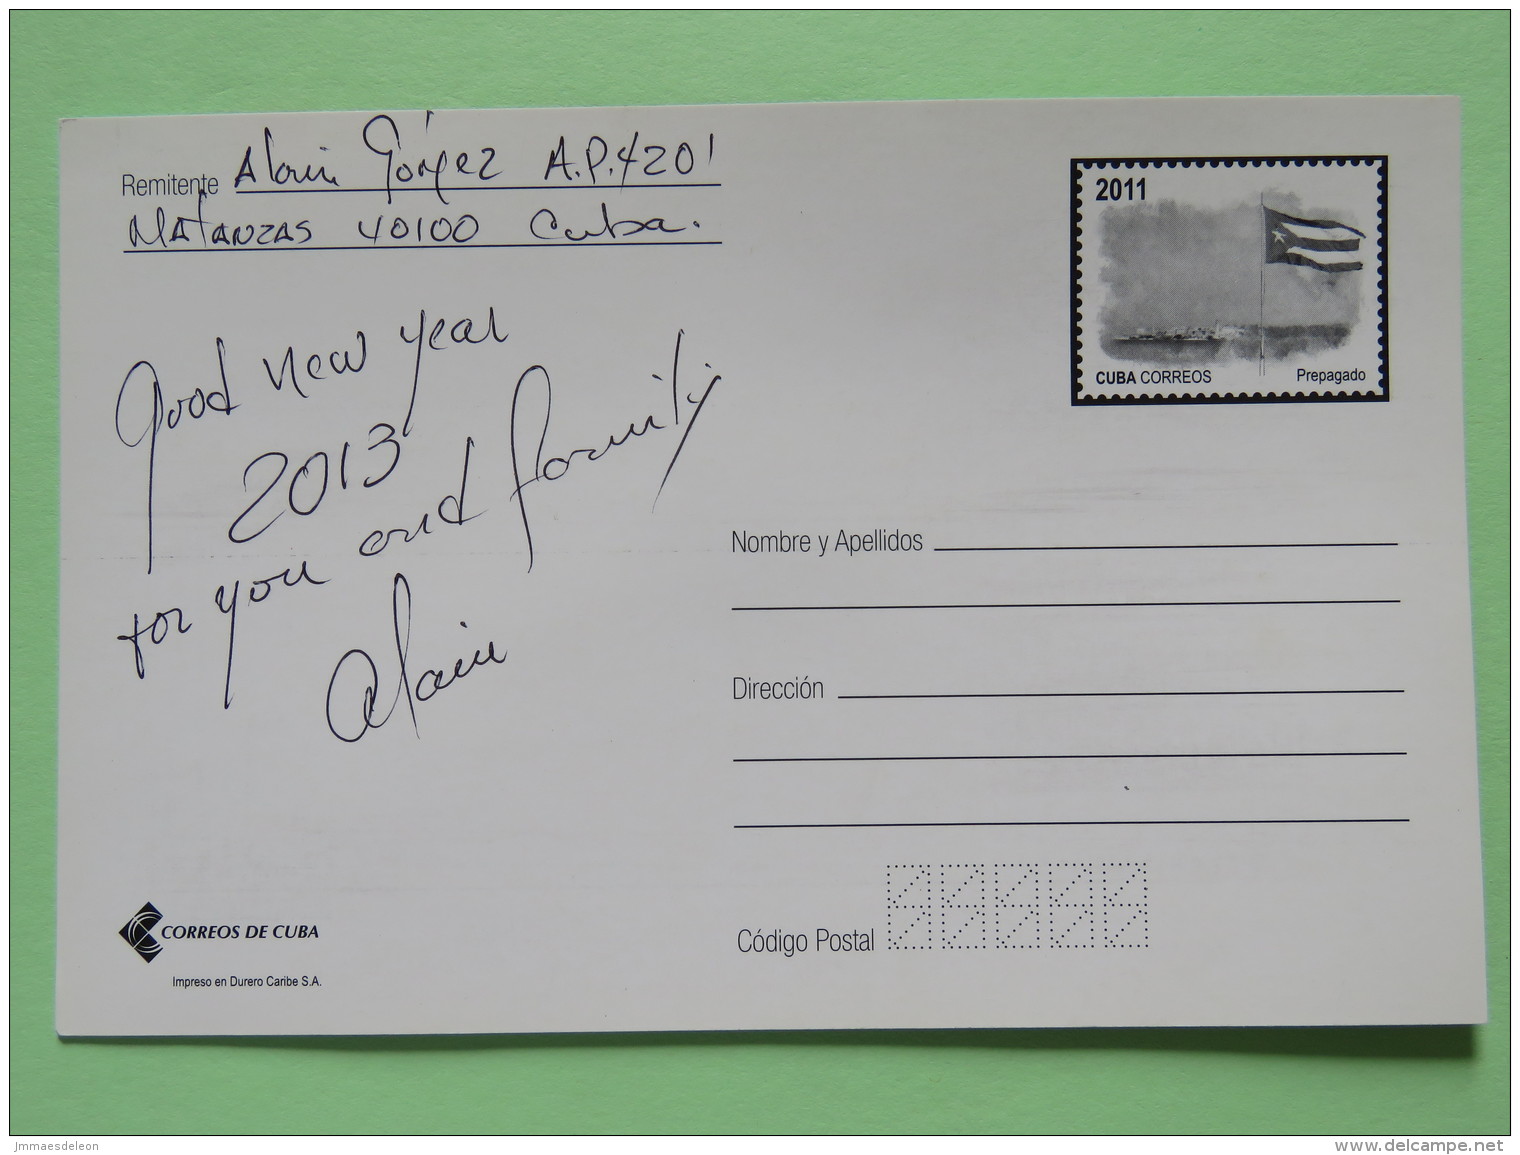 Remitente Alain Gómez A.P.4201
Matanzas 40100 Cuba.
2011
CUBA CORREOS Prepagado
Good new year
2013
for you and family
Alain
Nombre y Apellidos
Dirección
Código Postal
CORREOS DE CUBA
Impreso en Durero Caribe S.A.
jmmaesdeleon
delcampe.net